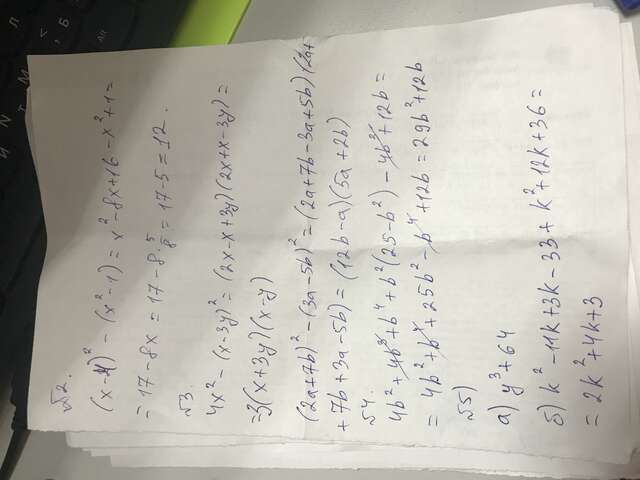 №2.
(x-4)² - (x² - 1) = x² - 8x + 16 - x² + 1 =
= 17 - 8x = 17 - 8 · 5/8 = 17 - 5 = 12.
№3.
4x² - (x - 3y)² = (2x - x + 3y)(2x + x - 3y) =
= 3(x + 3y)(x - y)
(2a + 7b)² - (3a - 5b)² = (2a + 7b - 3a + 5b)(2a +
+ 7b + 3a - 5b) = (12b - a)(5a + 2b)
№4.
4b² + 4b³ + b⁴ + b²(25 - b²) - 4b³ + 12b =
= 4b² + b⁴ + 25b² - b⁴ + 12b = 29b² + 12b
№5)
а) y³ + 64
б) k² - 11k + 3k - 33 + k² + 12k + 36 =
= 2k² + 4k + 3